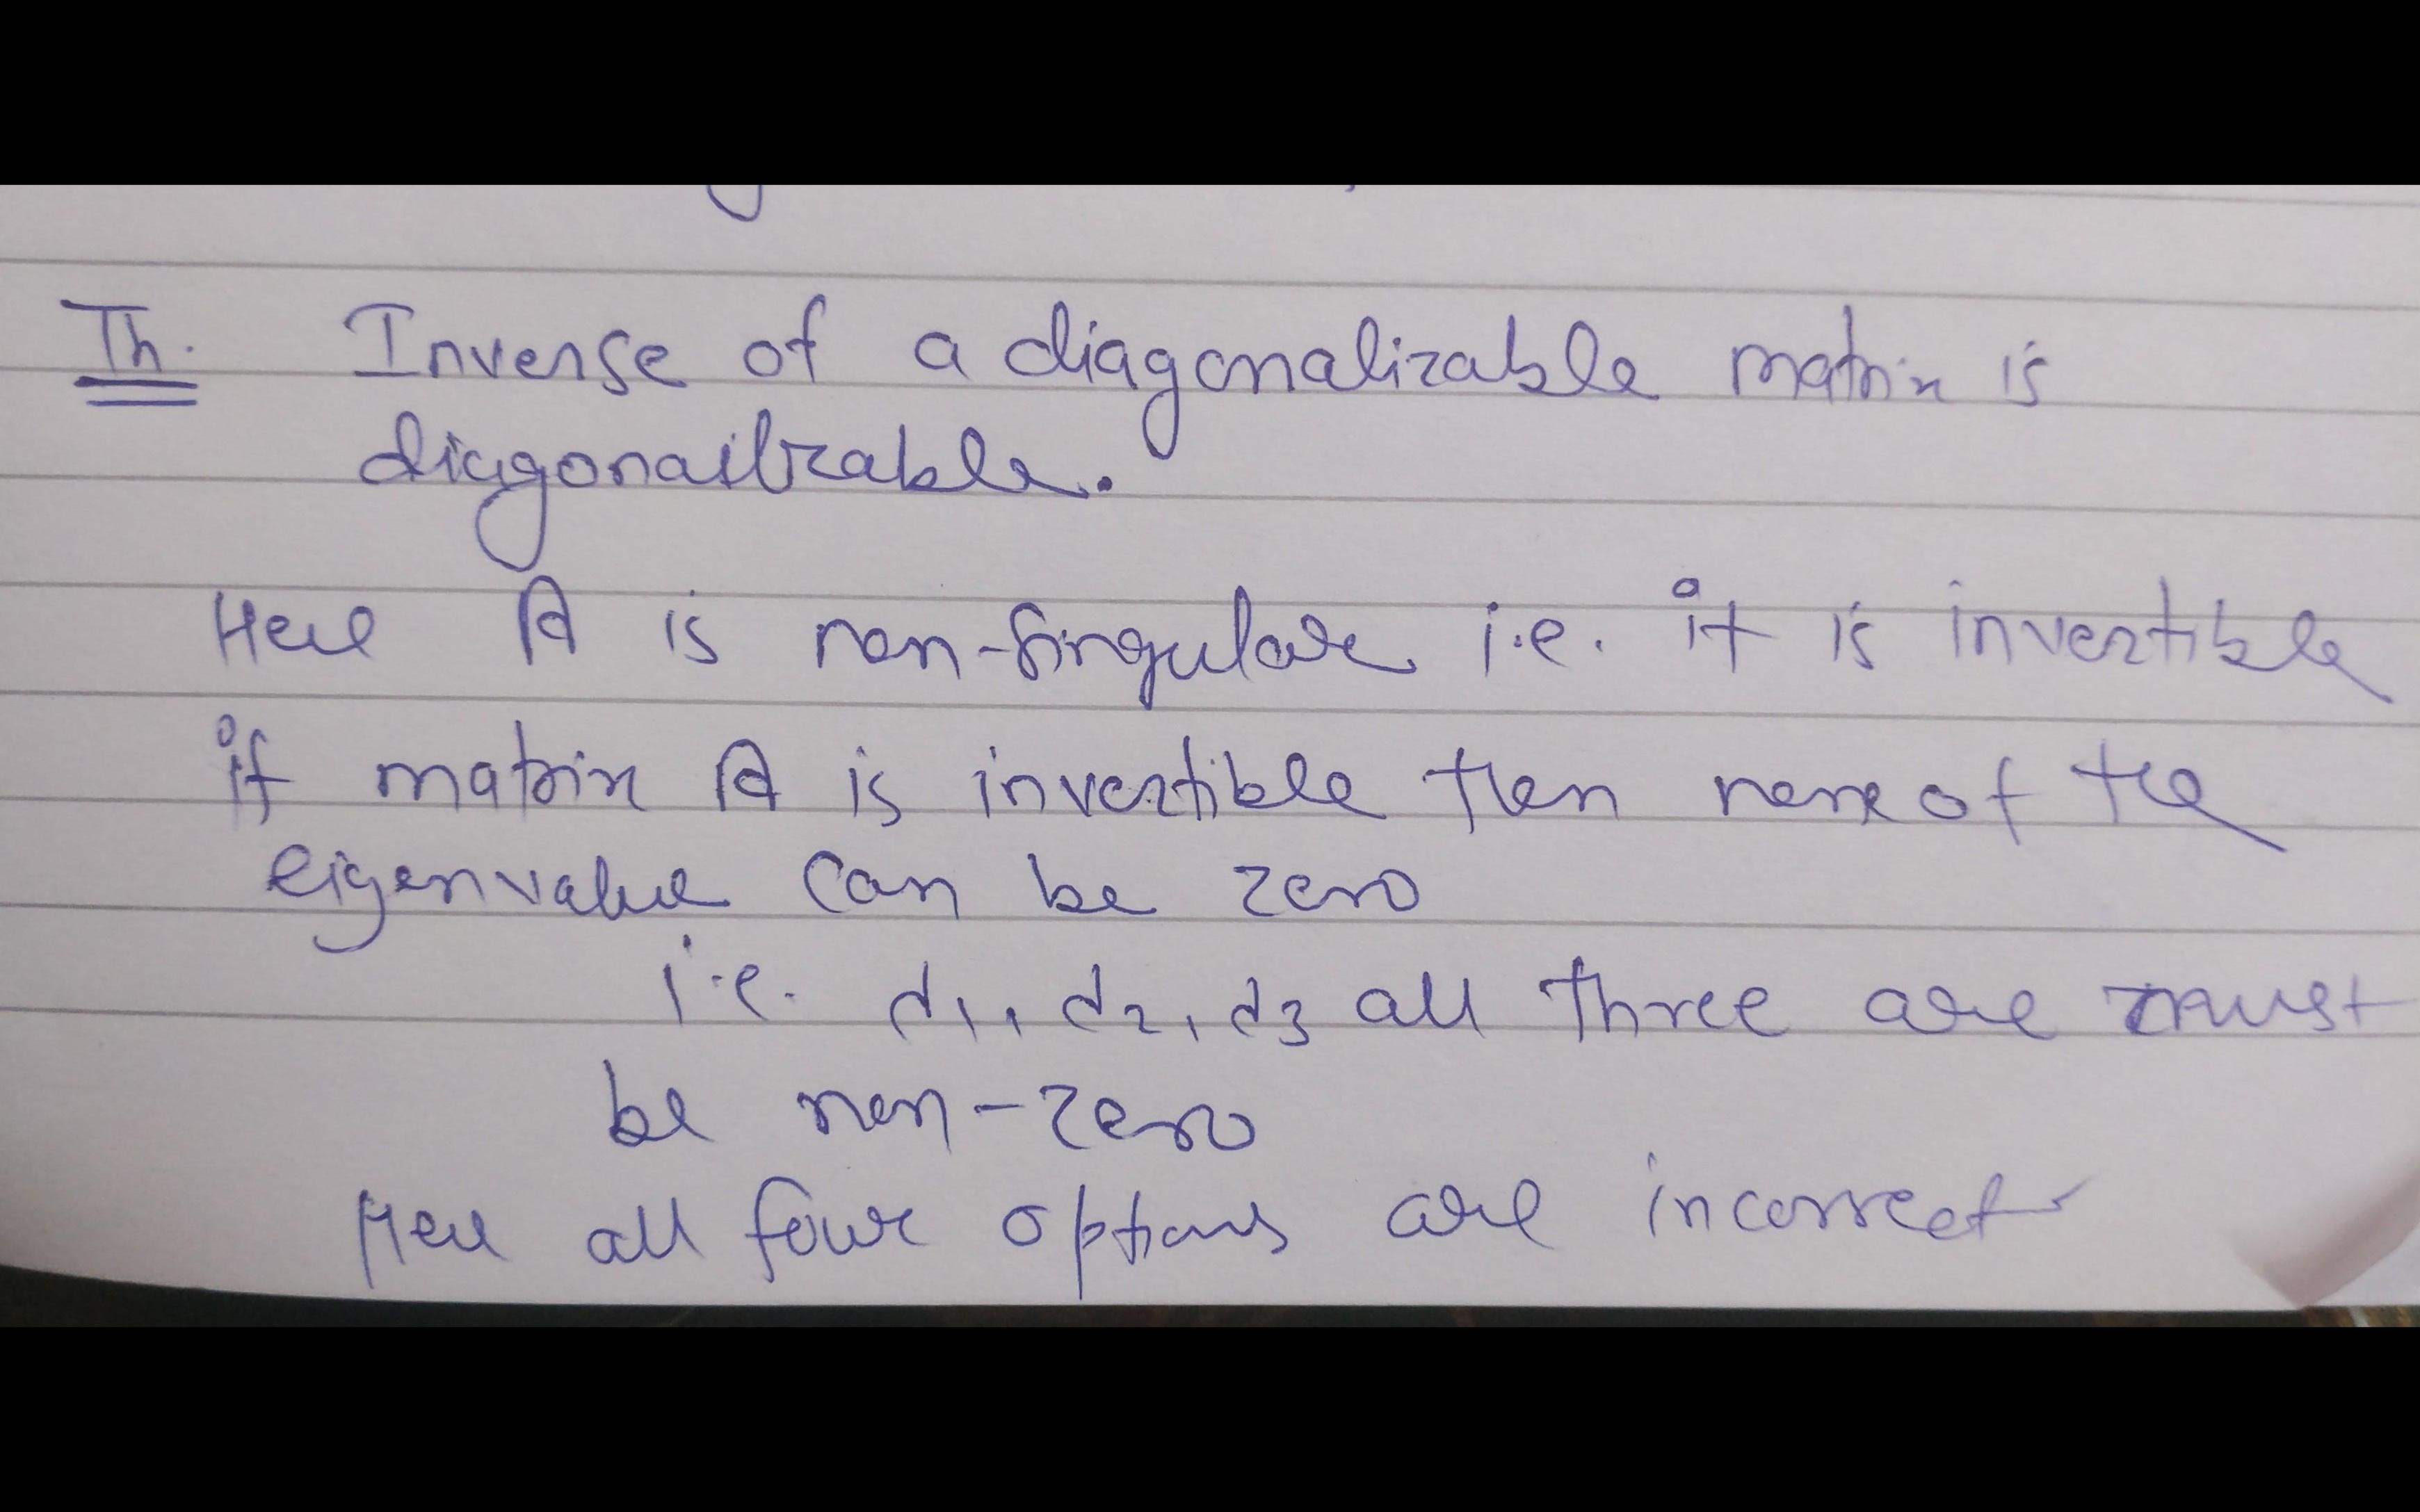 Th. Inverse of a diagonalizable matrix is
diagonailzable.
Here A is non-singular i.e. it is invertible
if matrix A is invertible then none of the
eigenvalue can be zero
i.e. d1, d2, d3 all three are must
be non-zero
Here all four options are incorrect